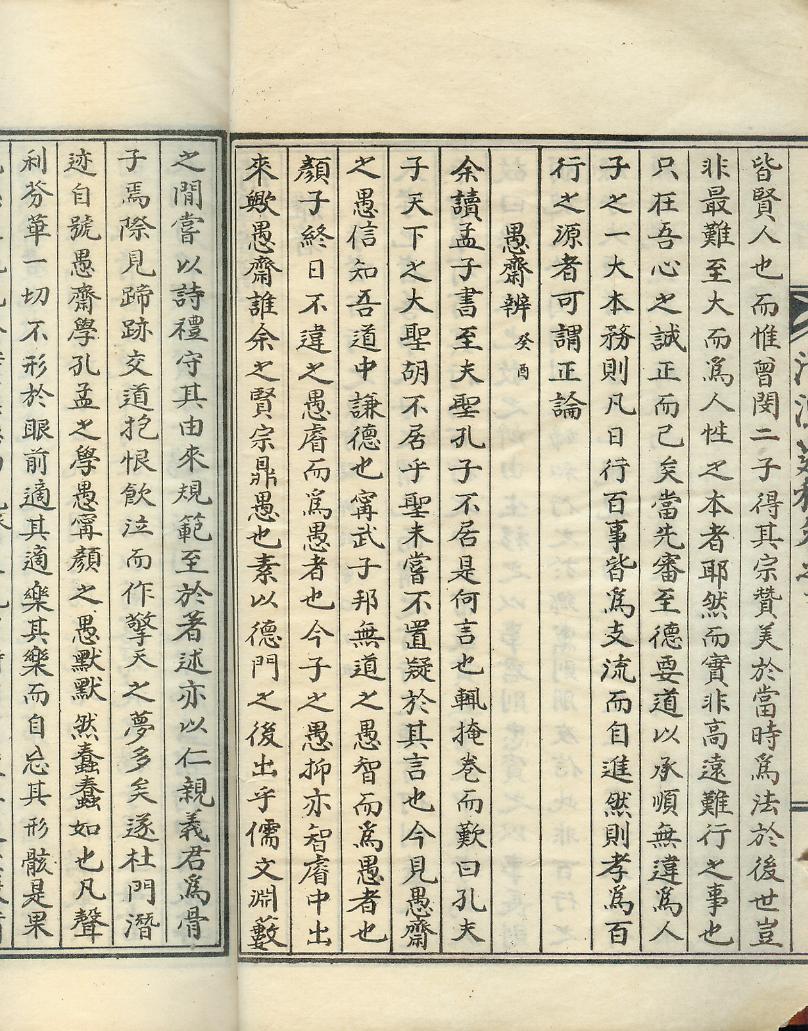 皆賢人也而惟曾閔二子得其宗贊美於當時爲法於後世豈
非最難至大而爲人性之本者耶然而實非高遠難行之事也
只在吾心之誠正而已矣當先審至德要道以承順無違爲人
子之一大本務則凡日行百事皆爲支流而自進然則孝爲百
行之源者可謂正論
愚齋辨 癸酉
余讀孟子書至夫聖孔子不居是何言也輒掩卷而歎曰孔夫
子天下之大聖胡不居乎聖未嘗不置疑於其言也今見愚齋
之愚信知吾道中謙德也甯武子邦無道之愚智而爲愚者也
顏子終日不違之愚睿而爲愚者也今子之愚抑亦智睿中出
來歟愚齋誰余之賢宗鼎愚也素以德門之後出乎儒文淵藪
之間嘗以詩禮守其由來規範至於著述亦以仁親義君爲骨
子焉際見蹄跡交道抱恨飮泣而作擎天之夢多矣遂杜門潛
迹自號愚齋學孔孟之學愚甯顏之愚默默然蠢蠢如也凡聲
利芬華一切不形於眼前適其適樂其樂而自忘其形骸是果